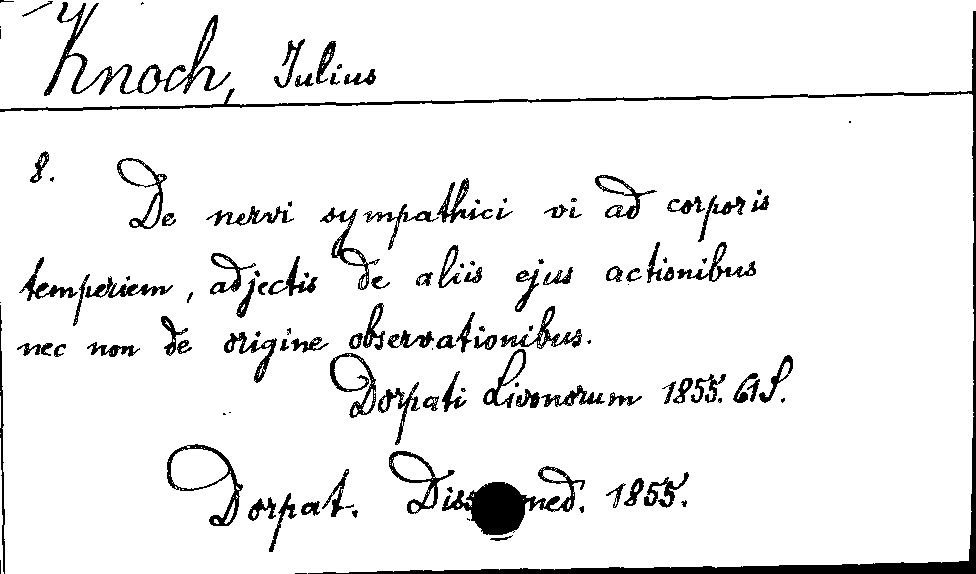 Knoch, Julius
8.
De nervi sympathici vi ad corporis
temperiem, adjectis de aliis ejus actionibus
nec non de origine observationibus.
Dorpati Livonorum 1855. 61 S.
Dorpat. Diss. med. 1855.